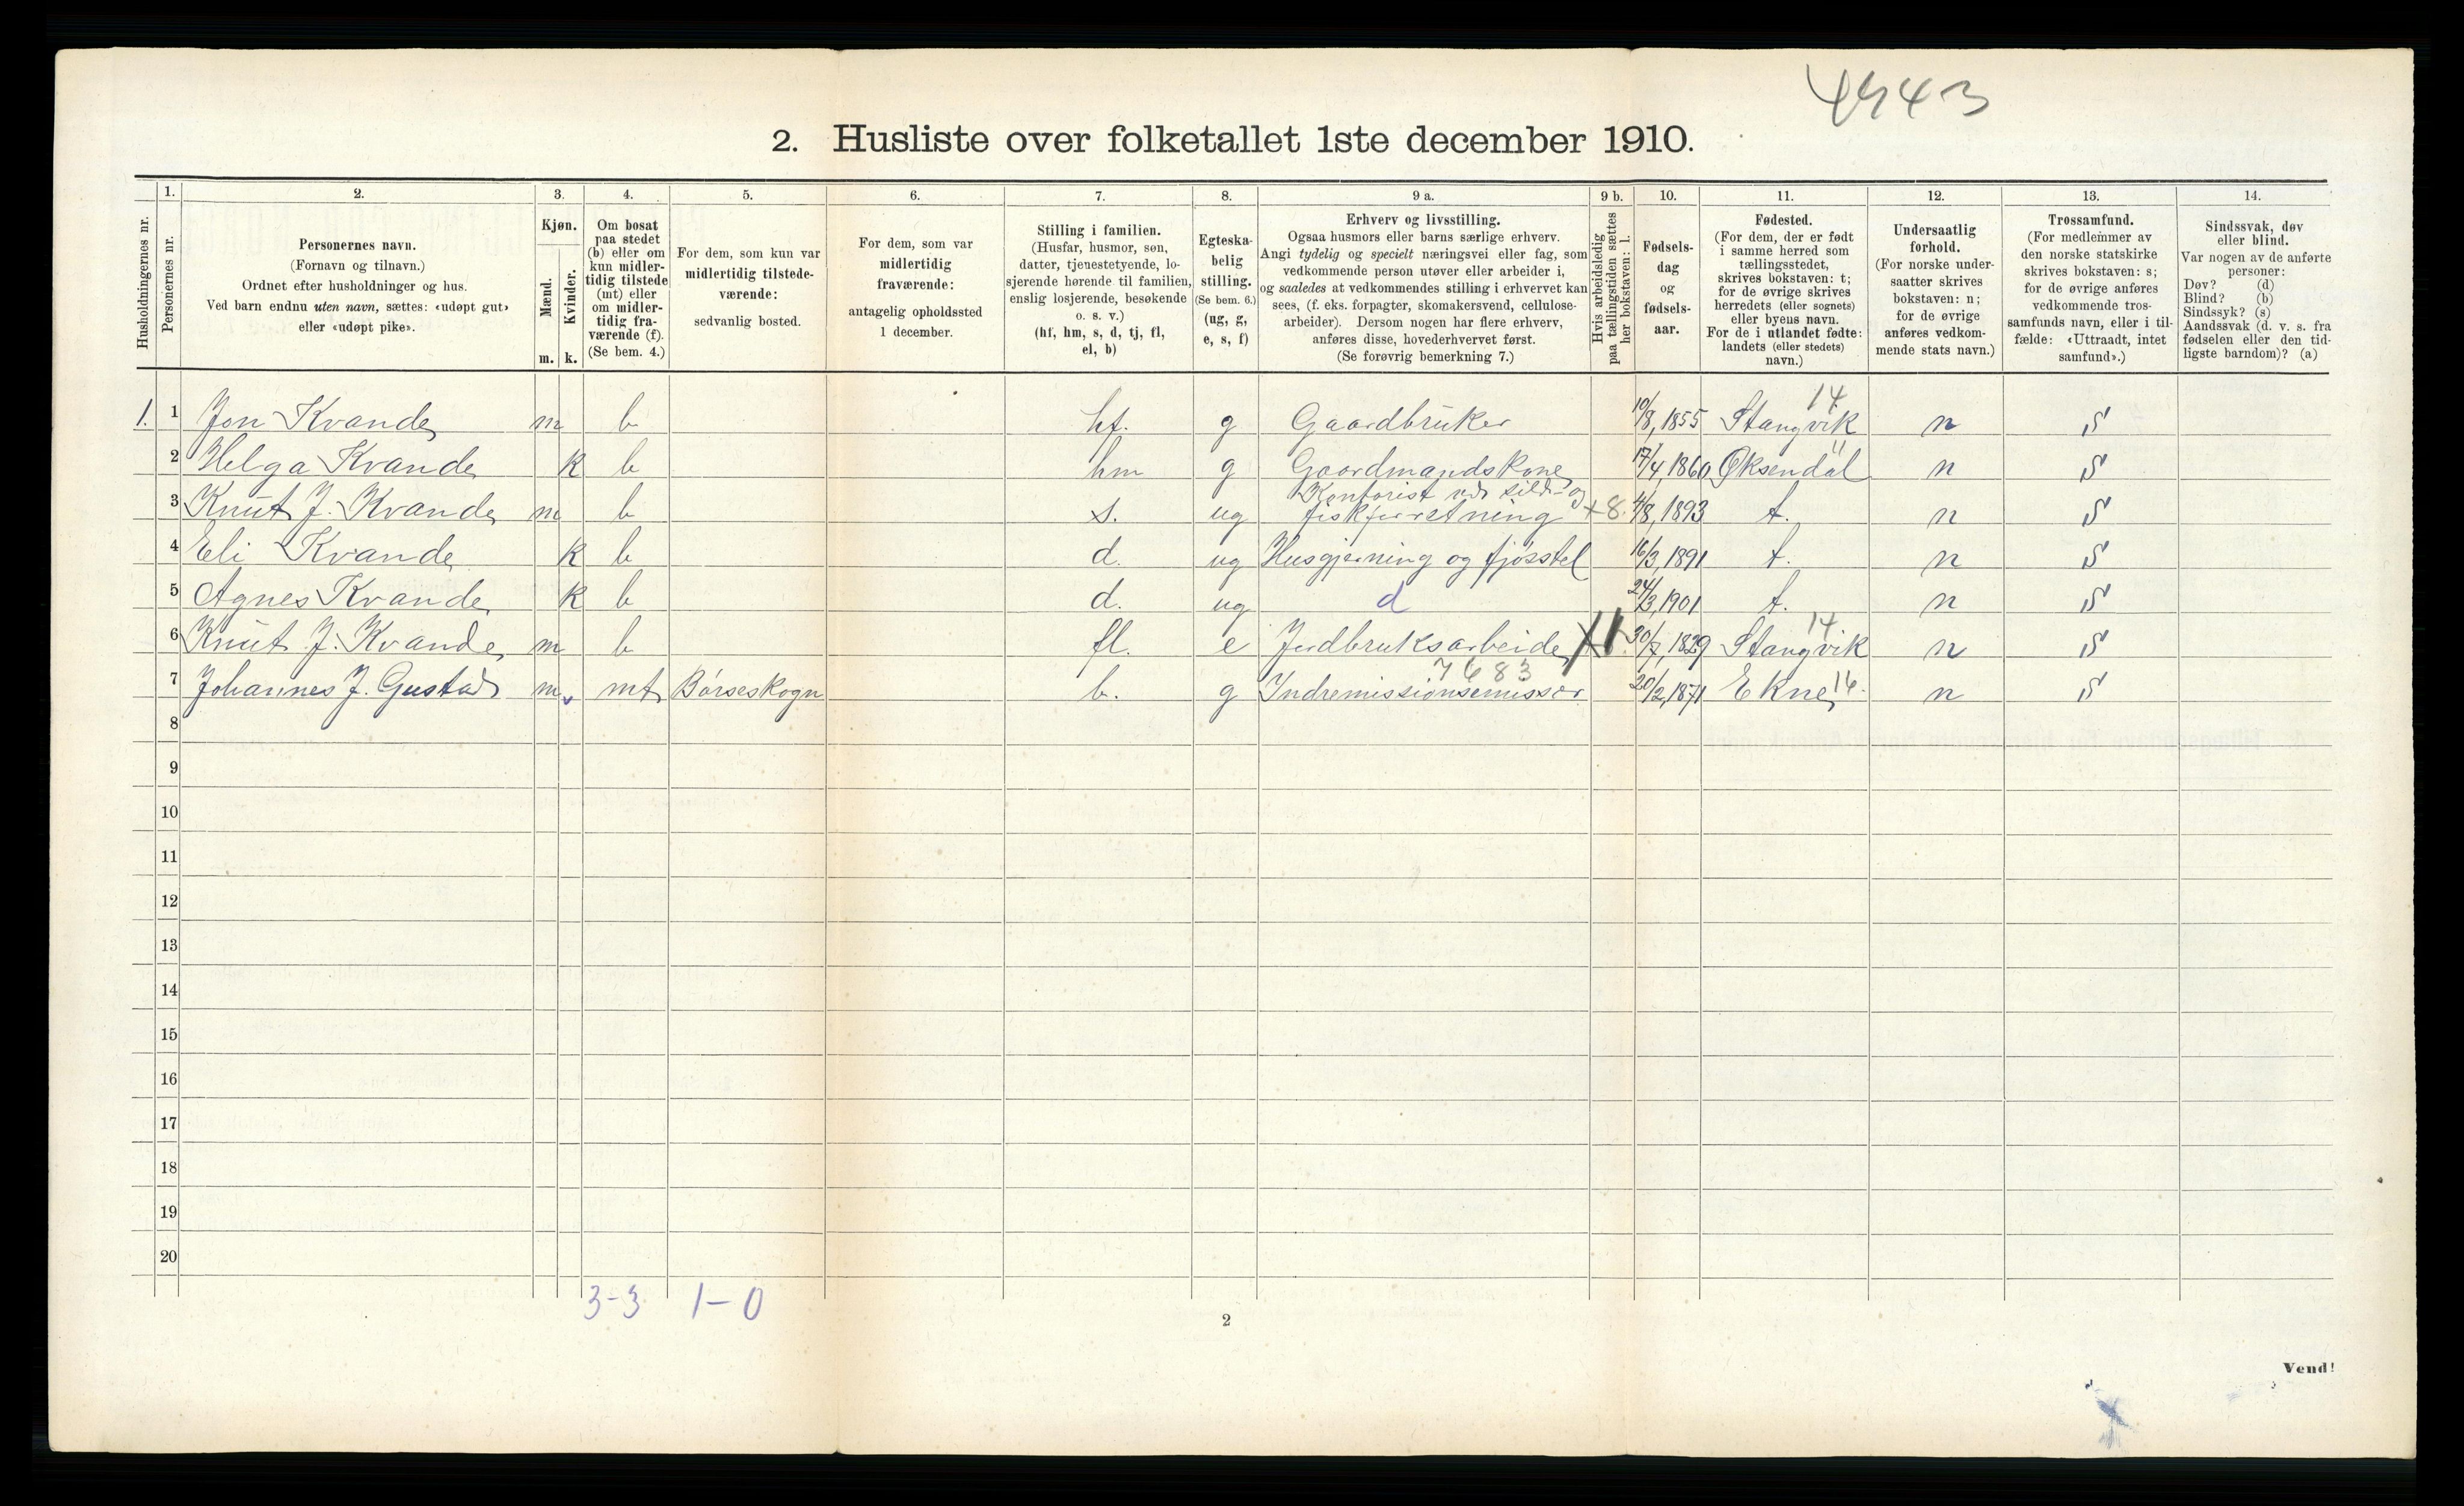 4943
2. Husliste over folketallet 1ste december 1910.
Husholdningernes nr.
1.
Personernes nr.
2.
Personernes navn.
(Fornavn og tilnavn.)
Ordnet efter husholdninger og hus.
Ved barn endnu uten navn, sættes: «udøpt gut»
eller «udøpt pike».
3.
Kjøn.
Mænd.
Kvinder.
m. k.
4.
Om bosat
paa stedet
(b) eller om
kun midler-
tidig tilstede
(mt) eller
om midler-
tidig fra-
værende (f).
(Se bem. 4.)
5.
For dem, som kun var
midlertidig tilstede-
værende:
sedvanlig bosted.
6.
For dem, som var
midlertidig
fraværende:
antagelig opholdssted
1 december.
7.
Stilling i familien.
(Husfar, husmor, søn,
datter, tjenestetyende, lo-
sjerende hørende til familien,
enslig losjerende, besøkende
o. s. v.)
(hf, hm, s, d, tj, fl,
el, b)
8.
Egteska-
belig
stilling.
(Se bem. 6.)
(ug, g,
e, s, f)
9 a.
Erhverv og livsstilling.
Ogsaa husmors eller barns særlige erhverv.
Angi tydelig og specielt næringsvei eller fag, som
vedkommende person utøver eller arbeider i,
og saaledes at vedkommendes stilling i erhvervet kan
sees, (f. eks. forpagter, skomakersvend, cellulose-
arbeider). Dersom nogen har flere erhverv,
anføres disse, hovederhvervet først.
(Se forøvrig bemerkning 7.)
9 b.
Hvis arbeidsledig
paa tællingstiden sættes
her bokstaven: l.
10.
Fødsels-
dag
og
fødsels-
aar.
11.
Fødested.
(For dem, der er født
i samme herred som
tællingsstedet,
skrives bokstaven: t;
for de øvrige skrives
herredets (eller sognets)
eller byens navn.
For de i utlandet fødte:
landets (eller stedets)
navn.)
12.
Undersaatlig
forhold.
(For norske under-
saatter skrives
bokstaven: n;
for de øvrige
anføres vedkom-
mende stats navn.)
13.
Trossamfund.
(For medlemmer av
den norske statskirke
skrives bokstaven: s;
for de øvrige anføres
vedkommende tros-
samfunds navn, eller i til-
fælde: «Uttraadt, intet
samfund».)
14.
Sindssvak, døv
eller blind.
Var nogen av de anførte
personer:
Døv? (d)
Blind? (b)
Sindssyk? (s)
Aandssvak (d. v. s. fra
fødselen eller den tid-
ligste barndom)? (a)
1. 1 Jon Kvande m b hf. g Gaardbruker 10/8, 1855 Stangvik 14 n S
2 Helga Kvande k b hm g Gaardmandskone 17/4, 1860 Øksendal 11 n S
3 Knut J. Kvande m b s. ug Kontorist ved sild- og fiskforretning +8. 4/8, 1893 t. n S
4 Eli Kvande k b d. ug Husgjerning og fjøsstel 16/3, 1891 t. n S
5 Agnes Kvande k b d. ug d 24/3, 1901 t. n S
6 Knut J. Kvande m b fl. e Jordbruksarbeide 30/7, 1829 Stangvik 14 n S
7683
7 Johannes J. Gustad m mt Børseskogn b. g Indremissionsemissær 20/2, 1871 Ekne 16. n S
8
9
10
11
12
13
14
15
16
17
18
19
20
3-3 1-0
2
Vend!